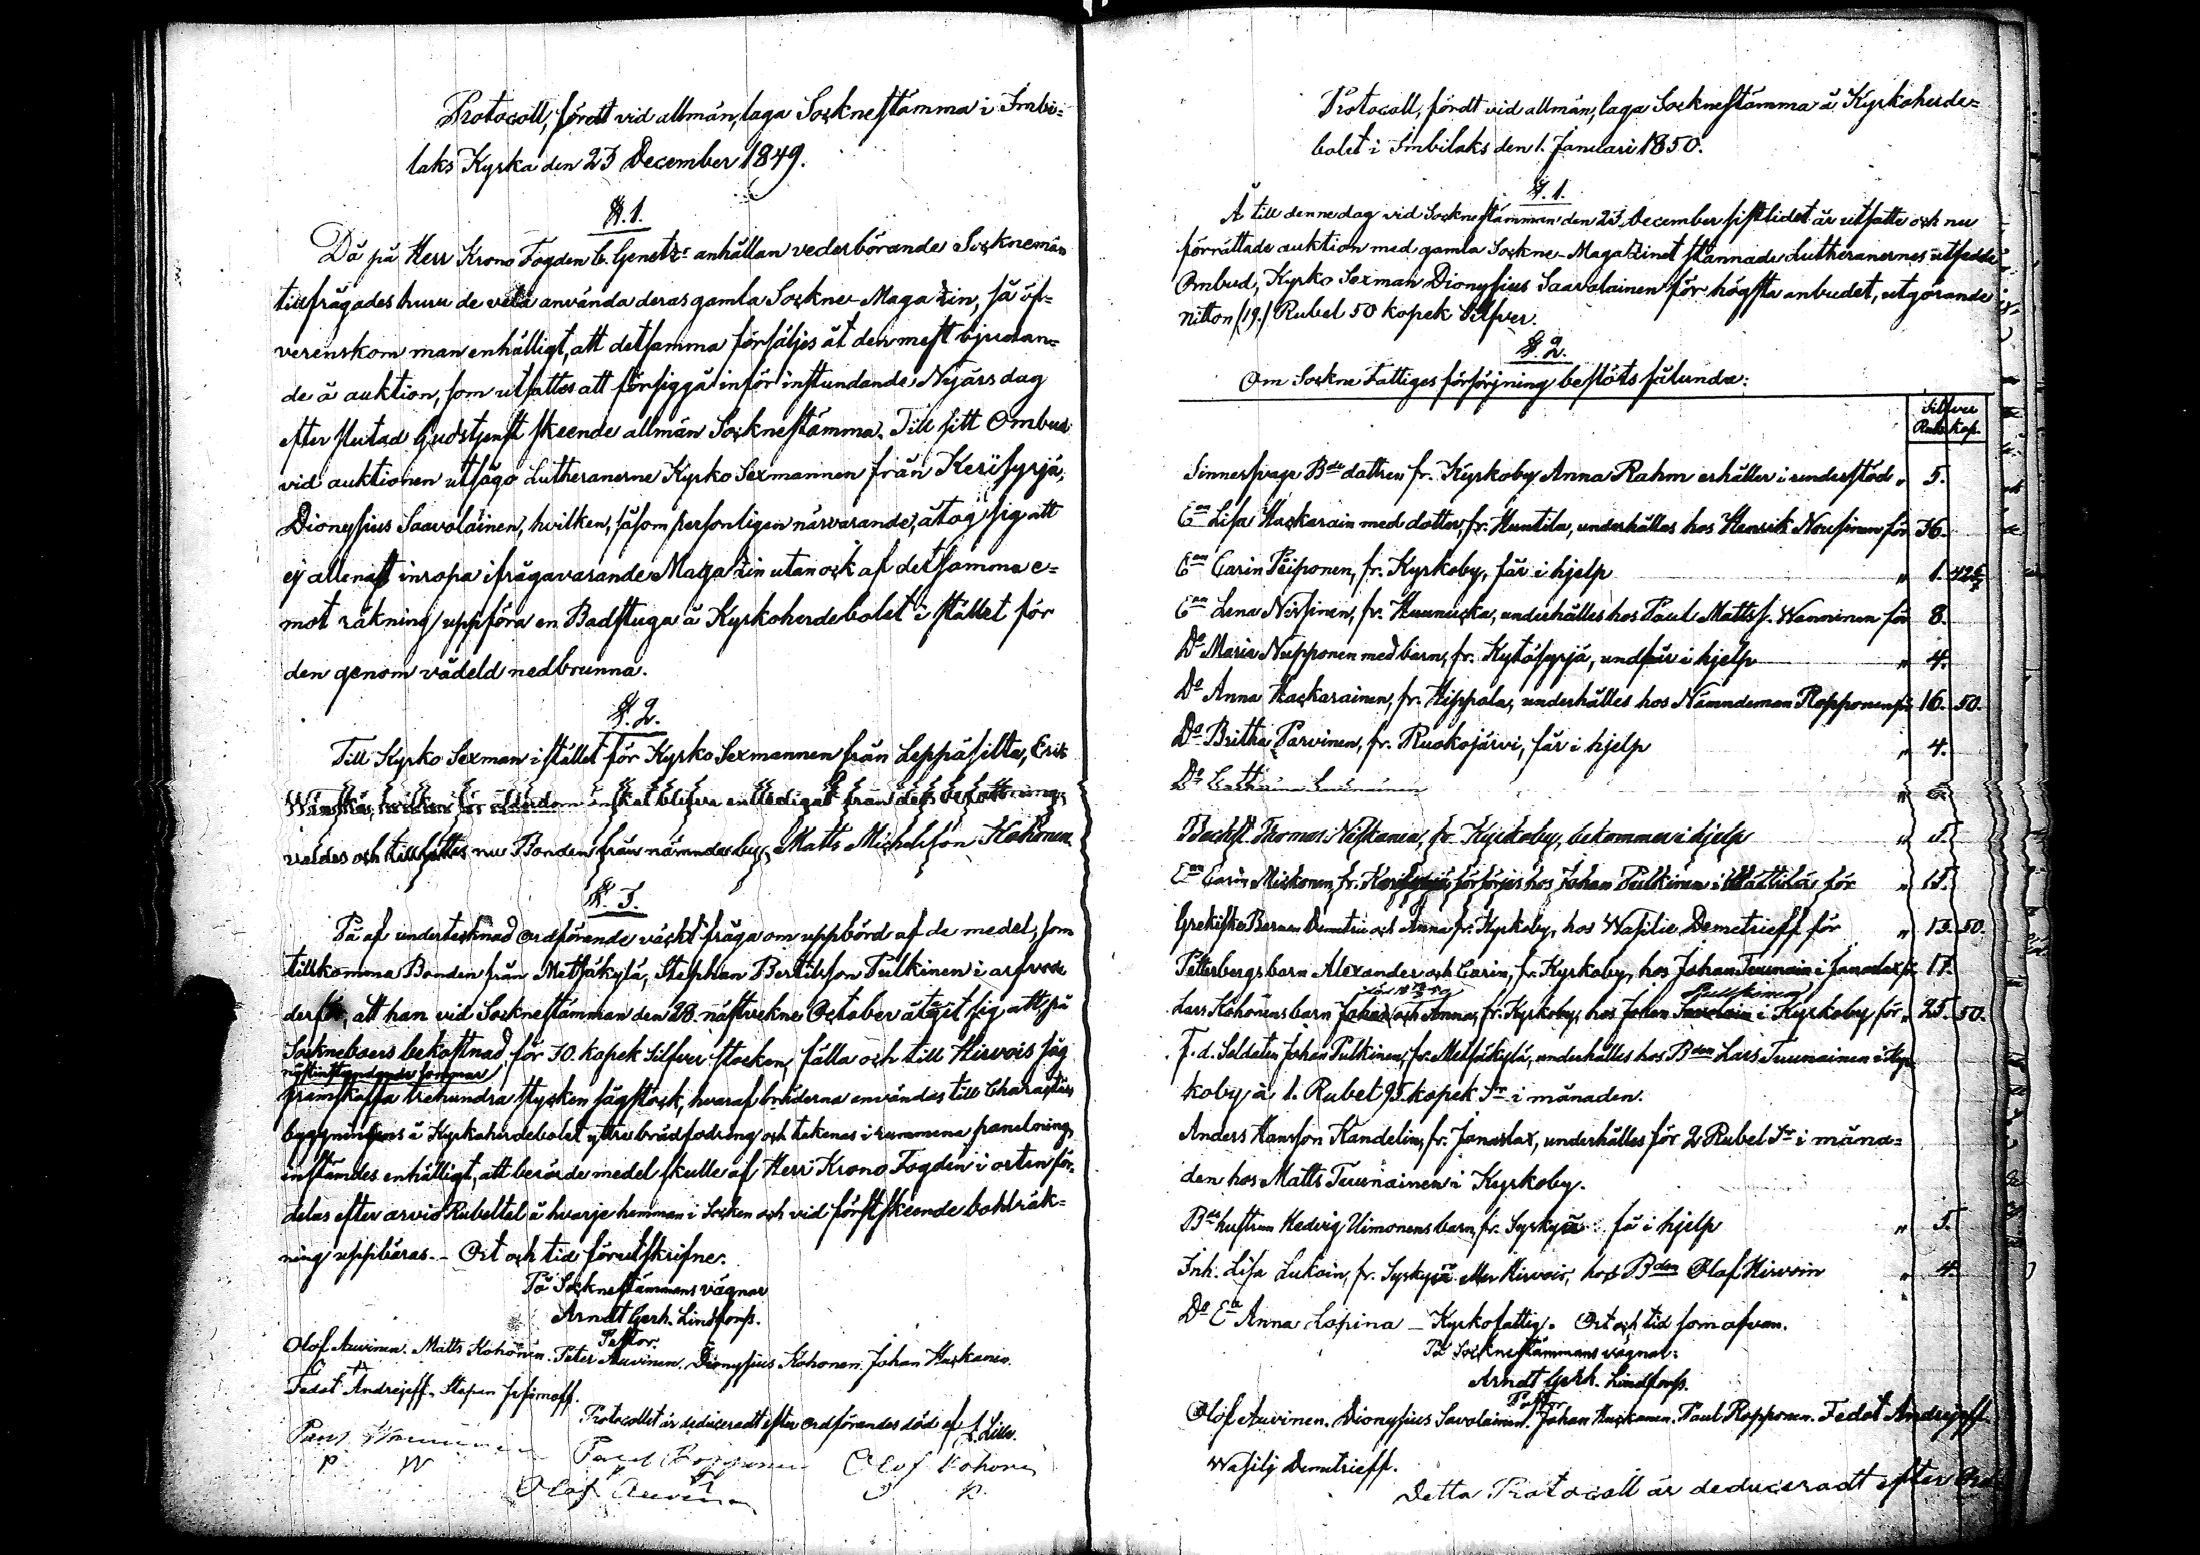 Protocoll, fördt vid allmän, laga Sockneſtämma i Imbi-
laks Kyrka den 23 December 1849.
§. 1.
Då på Herr Krono Fogden C. Genetz's anhållan vederbörande Socknemän
tillfrågades huru de vela använda deras gamla Sockne-Magazin, så öf-
verenskom man enhälligt, att detſamma förſäljes åt den meſt bjudan-
de å auktion, ſom utſattes att förſiggå inför inſtundande Nyårsdag
efter ſlutad Gudstjenſt ſkeende allmän Sockneſtämma. Till ſitt Ombud
vid auktionen utſågo Lutheranerne Kyrko Sexmannen från Keriſyrjä,
Dionyſius Saavolainen, hvilken, ſåſom perſonligen närvarande, åtog ſig att
ej allenaſt inropa ifrågavarande Magazin utan ock af detſamma e-
mot räkning uppföra en Badſtuga å Kyrkoherdebolet i ſtället för
den genom vådeld nedbrunna.
§. 2.
Till Kyrko Sexman i ſtället för Kyrko Sexmannen från Leppäſilta, Erik
hvilken för ålderdom önſkat blifva entledigad från des befattning,
valdes och tillſattes nu Bonden från nämnda by, Matts Michelsſon Kohonen.
§. 3.
På af undertecknad Ordförande väckt fråga om uppbörd af de medel, ſom
tillkomma Bonden från Metſäkylä, Stephan Bertilsſon Pulkinen i arfvode
derför, att han vid Sockneſtämman den 28. näſtvekne October åtagit ſig att, på
Sockneboers bekoſtnad, för 30. kopek Silfver ſtocken, fälla och till Hirvois ſåg
näſtinſtundande ſommar
framſkaffa trehundra ſtycken ſågſtock, hvaraf bräderna användas till Characters
byggningens å Kyrkoherdebolet yttre brädfodring och takenas i rummena panelning,
inſtämdes enhälligt, att berörde medel ſkulle af Herr Krono Fogden i orten för-
delas efter arvio Rubeltal å hvarje hemman i Socken och vid förſt ſkeende bohlräk-
ning uppbäras. - Ort och tid förutſkrifne.
På Sockneſtämmans vägnar
Arndt Gerh. Lindforſs.
Paſtor.
Olof Auvinen. Matts Kohonen. Peter Auvinen. Dionyſius Kohonen. Johan Hackanen.
Fedot Andrejeff. Stepan
Protocollet är deduceradt efter Ordförandes död af
Paul
P W
Paul Ropponen
Olof Kohonen
Olof Auvinen
Protocoll, fördt vid allmän, laga Sockneſtämma å Kyrkoherde-
bolet i Imbilaks den 1. Januari 1850.
§. 1.
Å till denne dag vid Sockneſtämman den 23 December ſiſtlidet år utſatte och nu
förrättade auktion med gamla Sockne-Magazinet ſtannade Lutheranernes utſedde
Ombud, Kyrko Sexman Dionyſius Saavolainen för högſta anbudet, utgörande
nitton /19./ Rubel 50 kopek Silfver.
§. 2.
Om Sockne Fattiges förſörjning beſlöts ſålunda:
Silfver
Rub. kop.
Sinnesſvage Bde dottren fr. Kyrkoby Anna Rahm erhåller i underſtöd " 5.
Enk Liſa Hackarain med dotter, fr. Huntila, underhålles hos Henrik Nouſinen för 36.
Enk Carin Piiponen, fr. Kyrkoby, får i hjelp " 1. 42
Enk Lena Nisſinen, fr. underhålles hos Paul Mattsſ. Wanninen för 8.
Do Maria Nupponen med barn, fr. Kytöſyrjä, undfår i hjelp " 4.
Do Anna Hackarainen, fr. Hippola, underhålles hos Nämndeman Ropponen för 16. 50.
Do Britha Parvinen, fr. Ruokojärvi, får i hjelp " 4.
Do Catharina
Thomas Niſkanen, fr. Kyrkoby, bekommer i hjelp " 5.
Enk Carin Miskonen, fr. förſörjes hos Johan Pulkinen i för " 15.
Grekiſke Barnen Demetri och Anna fr. Kyrkoby, hos Waſilie Demetrieff för " 13. 50.
Petterbergs barn Alexander och Carin, fr. Kyrkoby, hos Johan Tuunain i Janaslax för 17.
Pulkkinen
Lars Kohonens barn Johan och Anna, fr. Kyrkoby, hos Johan i Kyrkoby för " 25. 50.
F. d. Soldaten Johan Pulkinen, fr. Metſäkylä, underhålles hos Bden Lars Tuunainen i Kyr-
koby à 1. Rubel 95. kopek Sr i månaden.
Anders Hansſon Kandelin, fr. Janaslax, underhålles för 2 Rubel Sr i måna-
den hos Matts Tuunainen i Kyrkoby.
Bde huſtrun Hedvig Uimonens barn, fr. Syskyjä få i hjelp " 5.
Inh. Liſa Lukain, fr. Syskyjä eller Hirvois, hos Bden Olof Hirvoin " 4.
Do Ek Anna Lopina - Kyrkofattig. Ort och tid ſom ofvan.
På Sockneſtämmans vägnar:
Arndt Gerh. Lindforſs.
Paſtor
Olof Auvinen. Dionyſius Savolainen. Johan Hackanen. Paul Ropponen. Fedot Andrejeff.
Waſilij Demetrieff.
Detta Protocoll är deduceradt efter